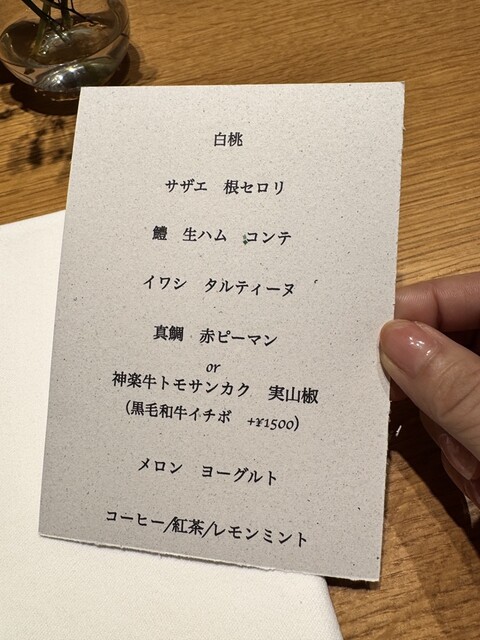 白桃
サザエ 根セロリ
鱧 生ハム コンテ
イワシ タルティーヌ
真鯛 赤ピーマン
or
神楽牛トモサンカク 実山椒
(黒毛和牛イチボ +¥1500)
メロン ヨーグルト
コーヒー/紅茶/レモンミント